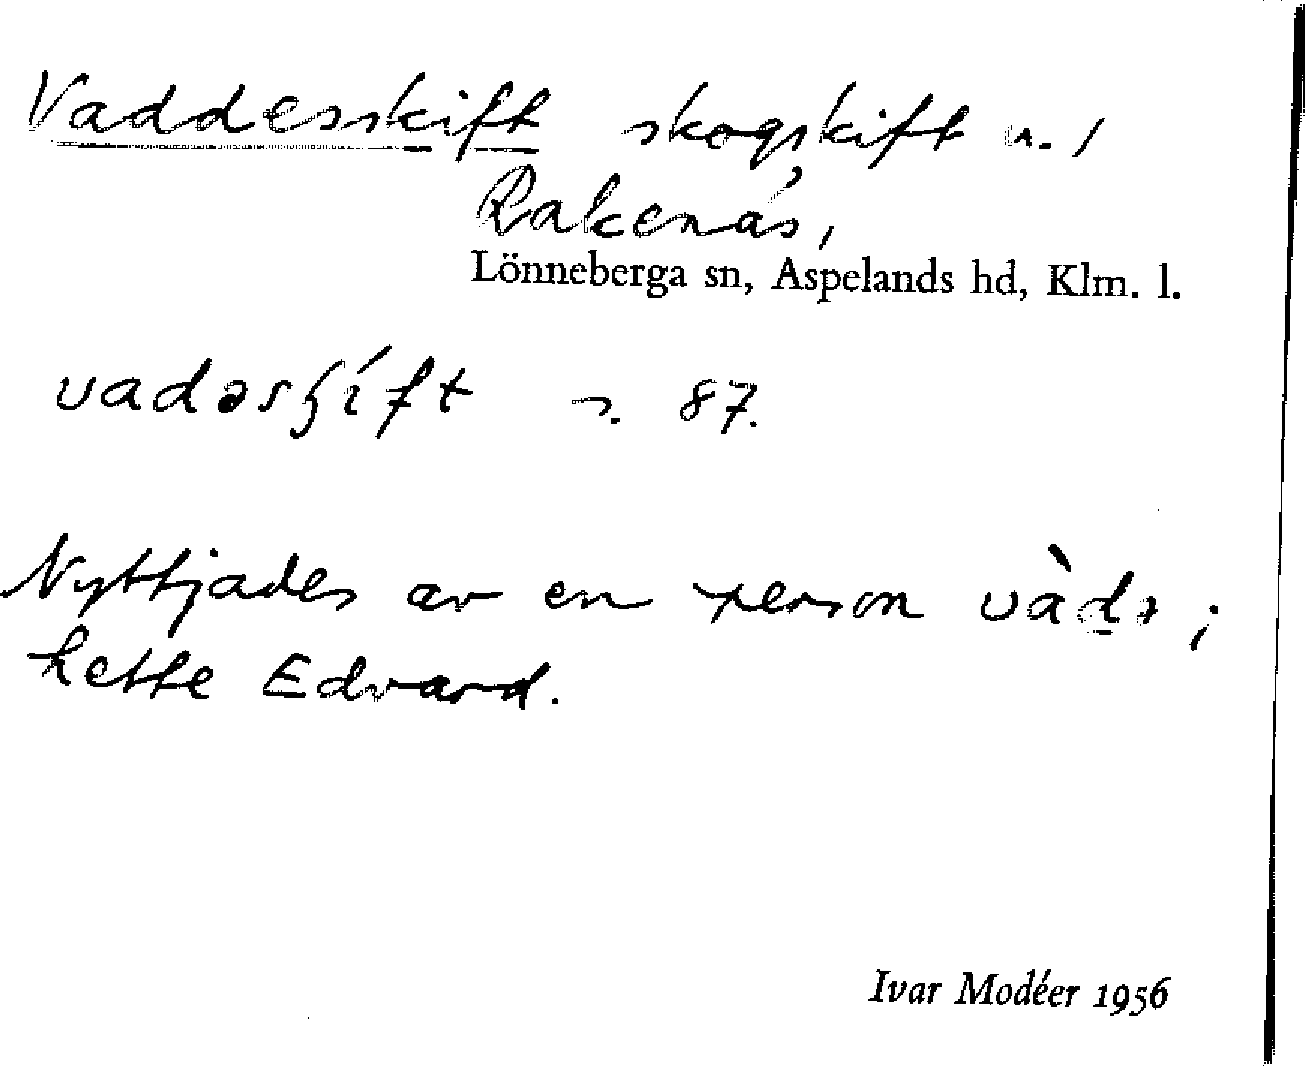 Vaddesskift skogskift n. 1
Rakenäs,
Lönneberga sn, Aspelands hd, Klm. l.
vadəsʃift n. 87.
Nyttjades av en person vàdə;
hette Edvard.
Ivar Modéer 1956